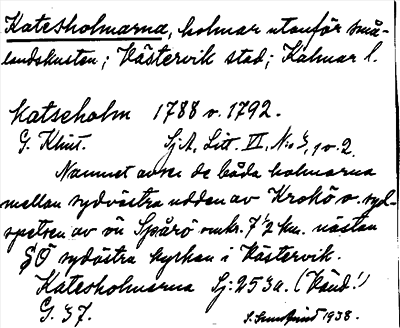 Katesholmarna, holmar utanför små-
landskusten; Västervik stad; Kalmar l.
Katseholm 1788 o. 1792.
G. Klint. Sj.A. Litt. VI, N:o 1 o. 2.
Namnet avser de båda holmarna
mellan sydvästra udden av Krokö o. syd-
spetsen av ön Spårö omkr. 7 1/2 km. nästan
SÖ sydöstra kyrkan i Västervik.
Katesholmarna Sj: 253a. (Känd!)
G. 37. 1938.